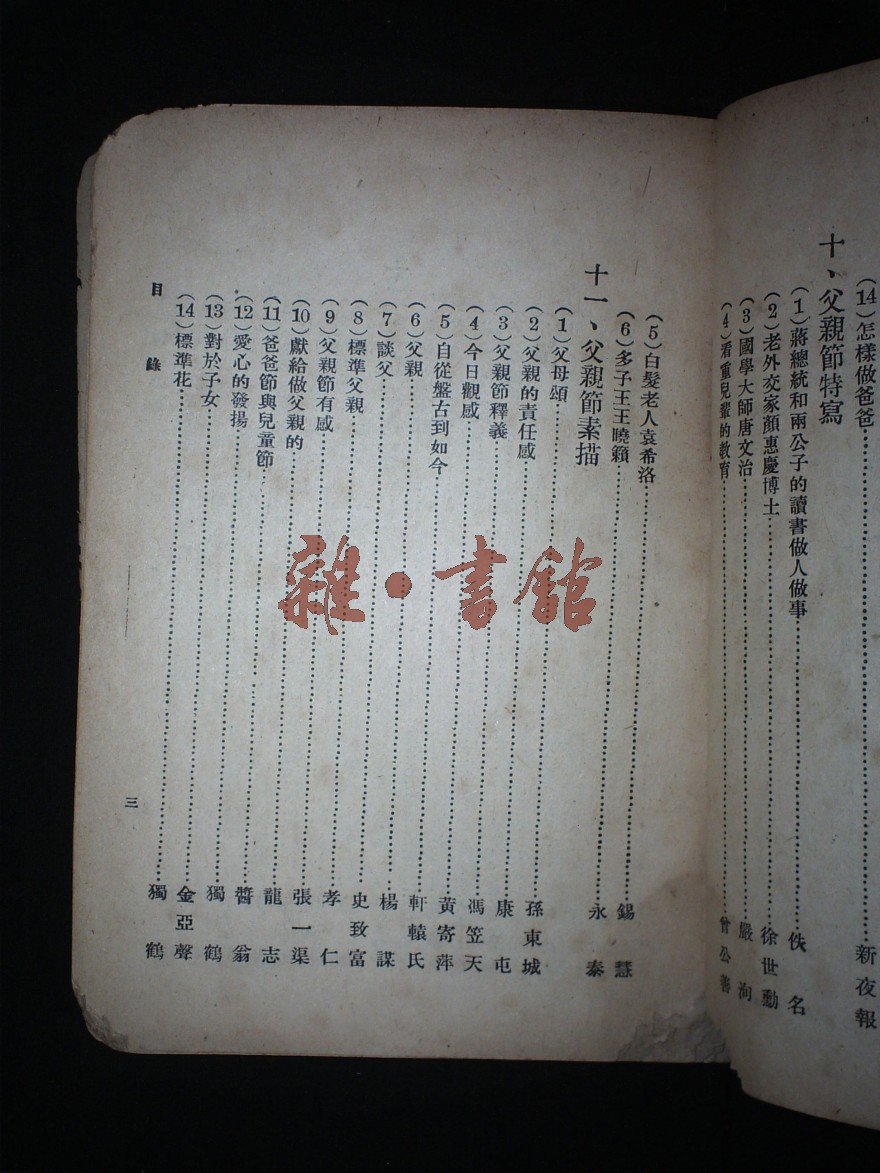 (14)怎樣做爸爸……新夜報
十、父親節特寫
(1)蔣總統和兩公子的讀書做人做事……佚名
(2)老外交家顏惠慶博士……徐世勳
(3)國學大師唐文治……嚴洵
(4)看重兒輩的教育……曾公善
(5)白髮老人袁希洛……錫慧
(6)多子王王曉籟……永泰
十一、父親節素描
(1)父母頌……孫東城
(2)父親的責任感……康屯
(3)父親節釋義……馮笠天
(4)今日觀感……黃寄萍
(5)自從盤古到如今……軒轅氏
(6)父親……楊謀
(7)談父……史致富
(8)標準父親……孝仁
(9)父親節有感……張一渠
(10)獻給做父親的……龍志
(11)爸爸節與兒童節……醬翁
(12)愛心的發揚……獨鶴
(13)對於子女……金亞聲
(14)標準花……獨鶴
目錄
三
雜·書館